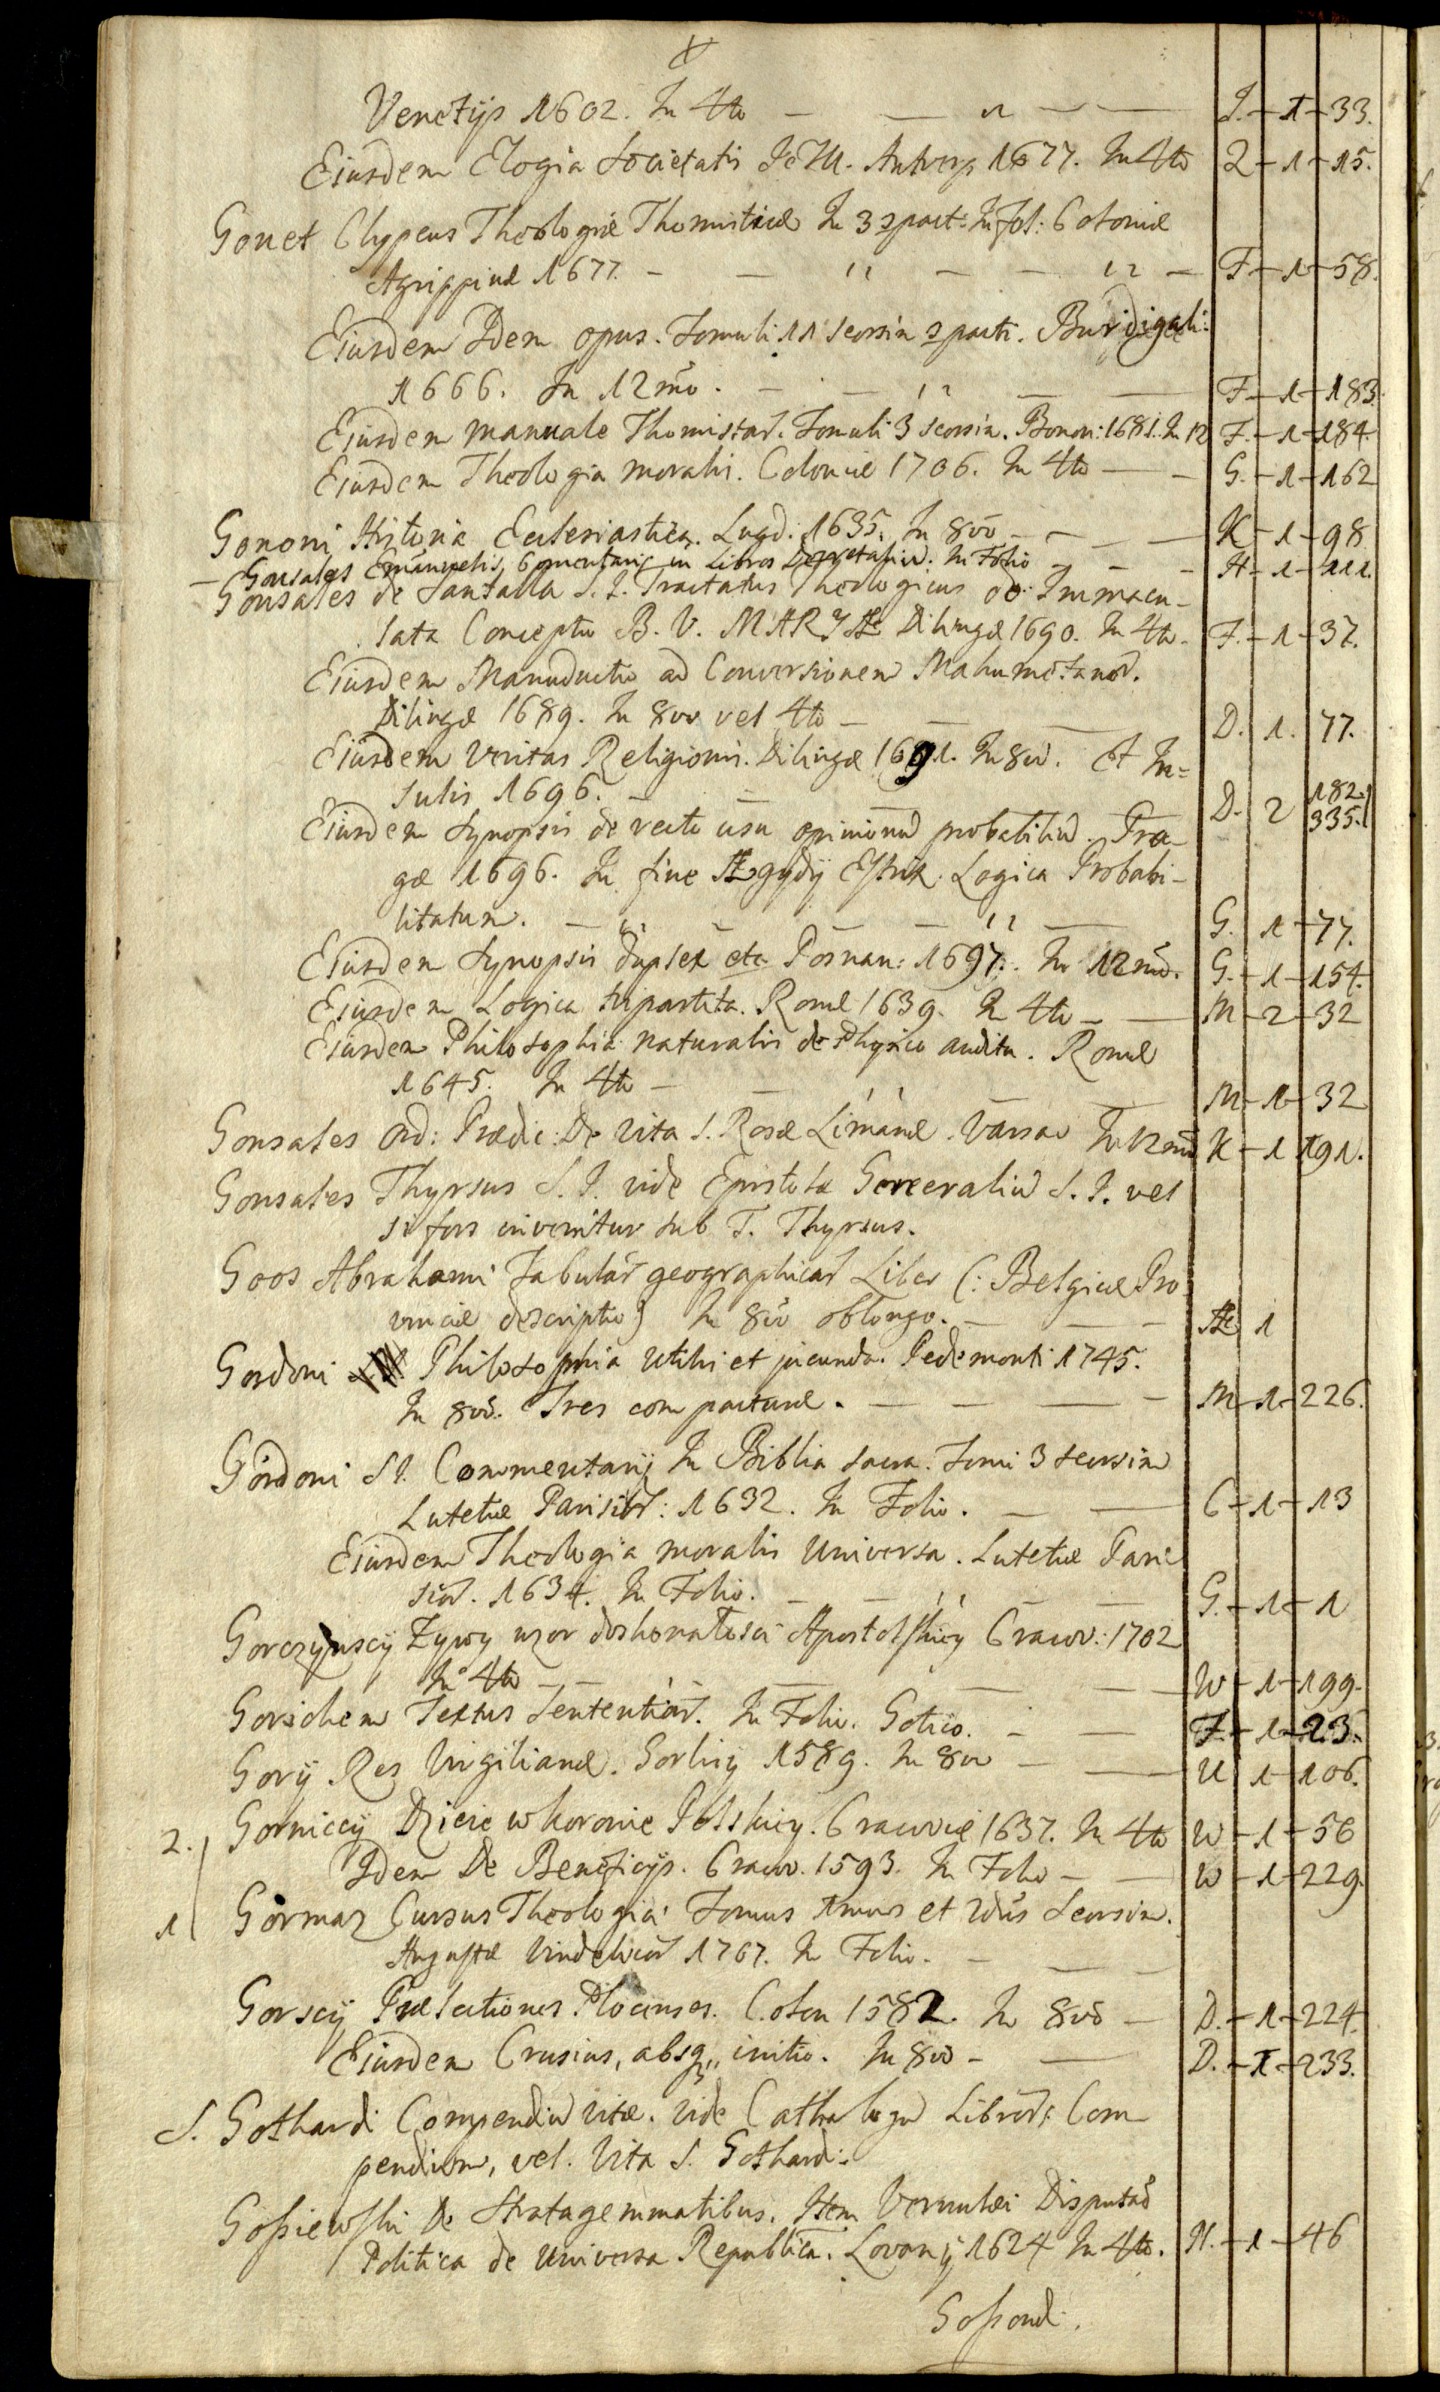 Venetijs 1602. In 4to — — " — — J. — 1 — 33.
Eiusdem Elogia Societatis JESU. Antverp 1677. In 4to 2 — 1 — 15.
Gonet Clypeus Theologiæ Thomisticæ In 3 spart: In Fol: Coloniæ
Agrippinæ 1677. — — " — — " — F. — 1 — 58.
Eiusdem Idem opus. Tomuli 11 seorsim spart. Burdigali:
1666. In 12mo. — — " — — F. — 1 — 183.
Eiusdem manuale Thomistar. Tomuli 3 seorsim. Bonon: 1681. In 12 F. — 1 — 184.
Eiusdem Theologia moralis. Coloniæ 1706. In 4to — — G. — 1 — 162
Gononi Historia Ecclesiastica. Lugd: 1635. In 8vo — — — K — 1 — 98
— Gonsales Emanuelis Comentarij in Libros Decretalium. In Folio — — H — 1 — 111.
Gonsales de Santalla S. J. Tractatus Theologicus de Immacu-
lata Conceptio B. V. MARIÆ Dilingæ 1690. In 4to. F. — 1 — 37.
Eiusdem Manuductio ad Conversionem Mahumetanor.
Dilingæ 1689. In 8vo vel 4to — — — D. 1. 77.
Eiusdem Veritas Religionis. Dilingæ 1691. In 8vo. Et In=
sulis 1696. — — — D. 2 182. 335.
Eiusdem Synopsis de recto usu opinionum probabilium. Pra-
gæ 1696. In fine Ægydij Estrix. Logica Probabi-
litatum. — " — — " — G. 1 — 77.
Eiusdem Synopsis duplex etc Posnan: 1697. In 12mo. G. — 1 — 154.
Eiusdem Logica tripartita. Romæ 1639. In 4to — — M — 2 — 32
Eiusdem Philosophia naturalis de Physico auditu. Romæ
1645. In 4to — — " — M — 1 — 32
Gonsales Ord: Prædic: De vita S. Rosæ Limanæ. Varsav In 12mo K — 1 191.
Gonsales Thyrsus S. J. vide Epistola Generalium S. J. vel
si fors invenitur sub T. Thyrsus.
Goos Abrahami Tabular geographicar Liber (: Belgicæ Pro
vinciæ descriptio) In 8vo oblongo. — — — Æ 1
Gordoni Philosophia utilis et jucunda. Pedemonti 1745.
In 8vo. Tres compacturæ. — — — — M — 1 — 226.
Gordoni S J. Commentarij In Biblia sacra. Tomi 3 seorsim
Lutetiæ Parisior: 1632. In Folio. — — C — 1 — 13
Eiusdem Theologia moralis Universa. Lutetiæ Pari
sior. 1634. In Folio. — — " — G. — 1 — 1
Gorczynscij Zywy wzor doskonałosci Apostolskiey Cracov: 1702
In 4to — — " — — — W — 1 — 199.
Gorichem Textus Sententiar. In Folio. Gotico. — — F. — 1 — 23.
Gorij Res Virgilianæ. Gorlicij 1589. In 8vo — — U 1 — 106.
2. Gorniccij Dzieie w koronie Polskiey. Cracoviæ 1637. In 4to W — 1 — 56
Idem De Beneficijs. Cracov. 1593. In Folio — — W — 1 — 229.
1 Gormaz Cursus Theologia Tomus 1mus et 2dus Seorsim.
Augustæ Vindelicor 1707. In Folio. — — —
Gorscij Prælectiones Plocenses. Colon 1582. In 8vo — D. — 1 — 224.
Eiusdem Crusius, absq„ initio. In 8vo — — D. — 1 — 233.
S. Gothardi Compendium vitæ. vide Cathalogum Libror: Com
pendium, vel. Vita S. Gothardi:
Gosiewski De Stratagemmatibus. Item Vernulæi Disputao
Politica de universa Republica. Lovanij 1624 In 4to. N. — 1 — 46